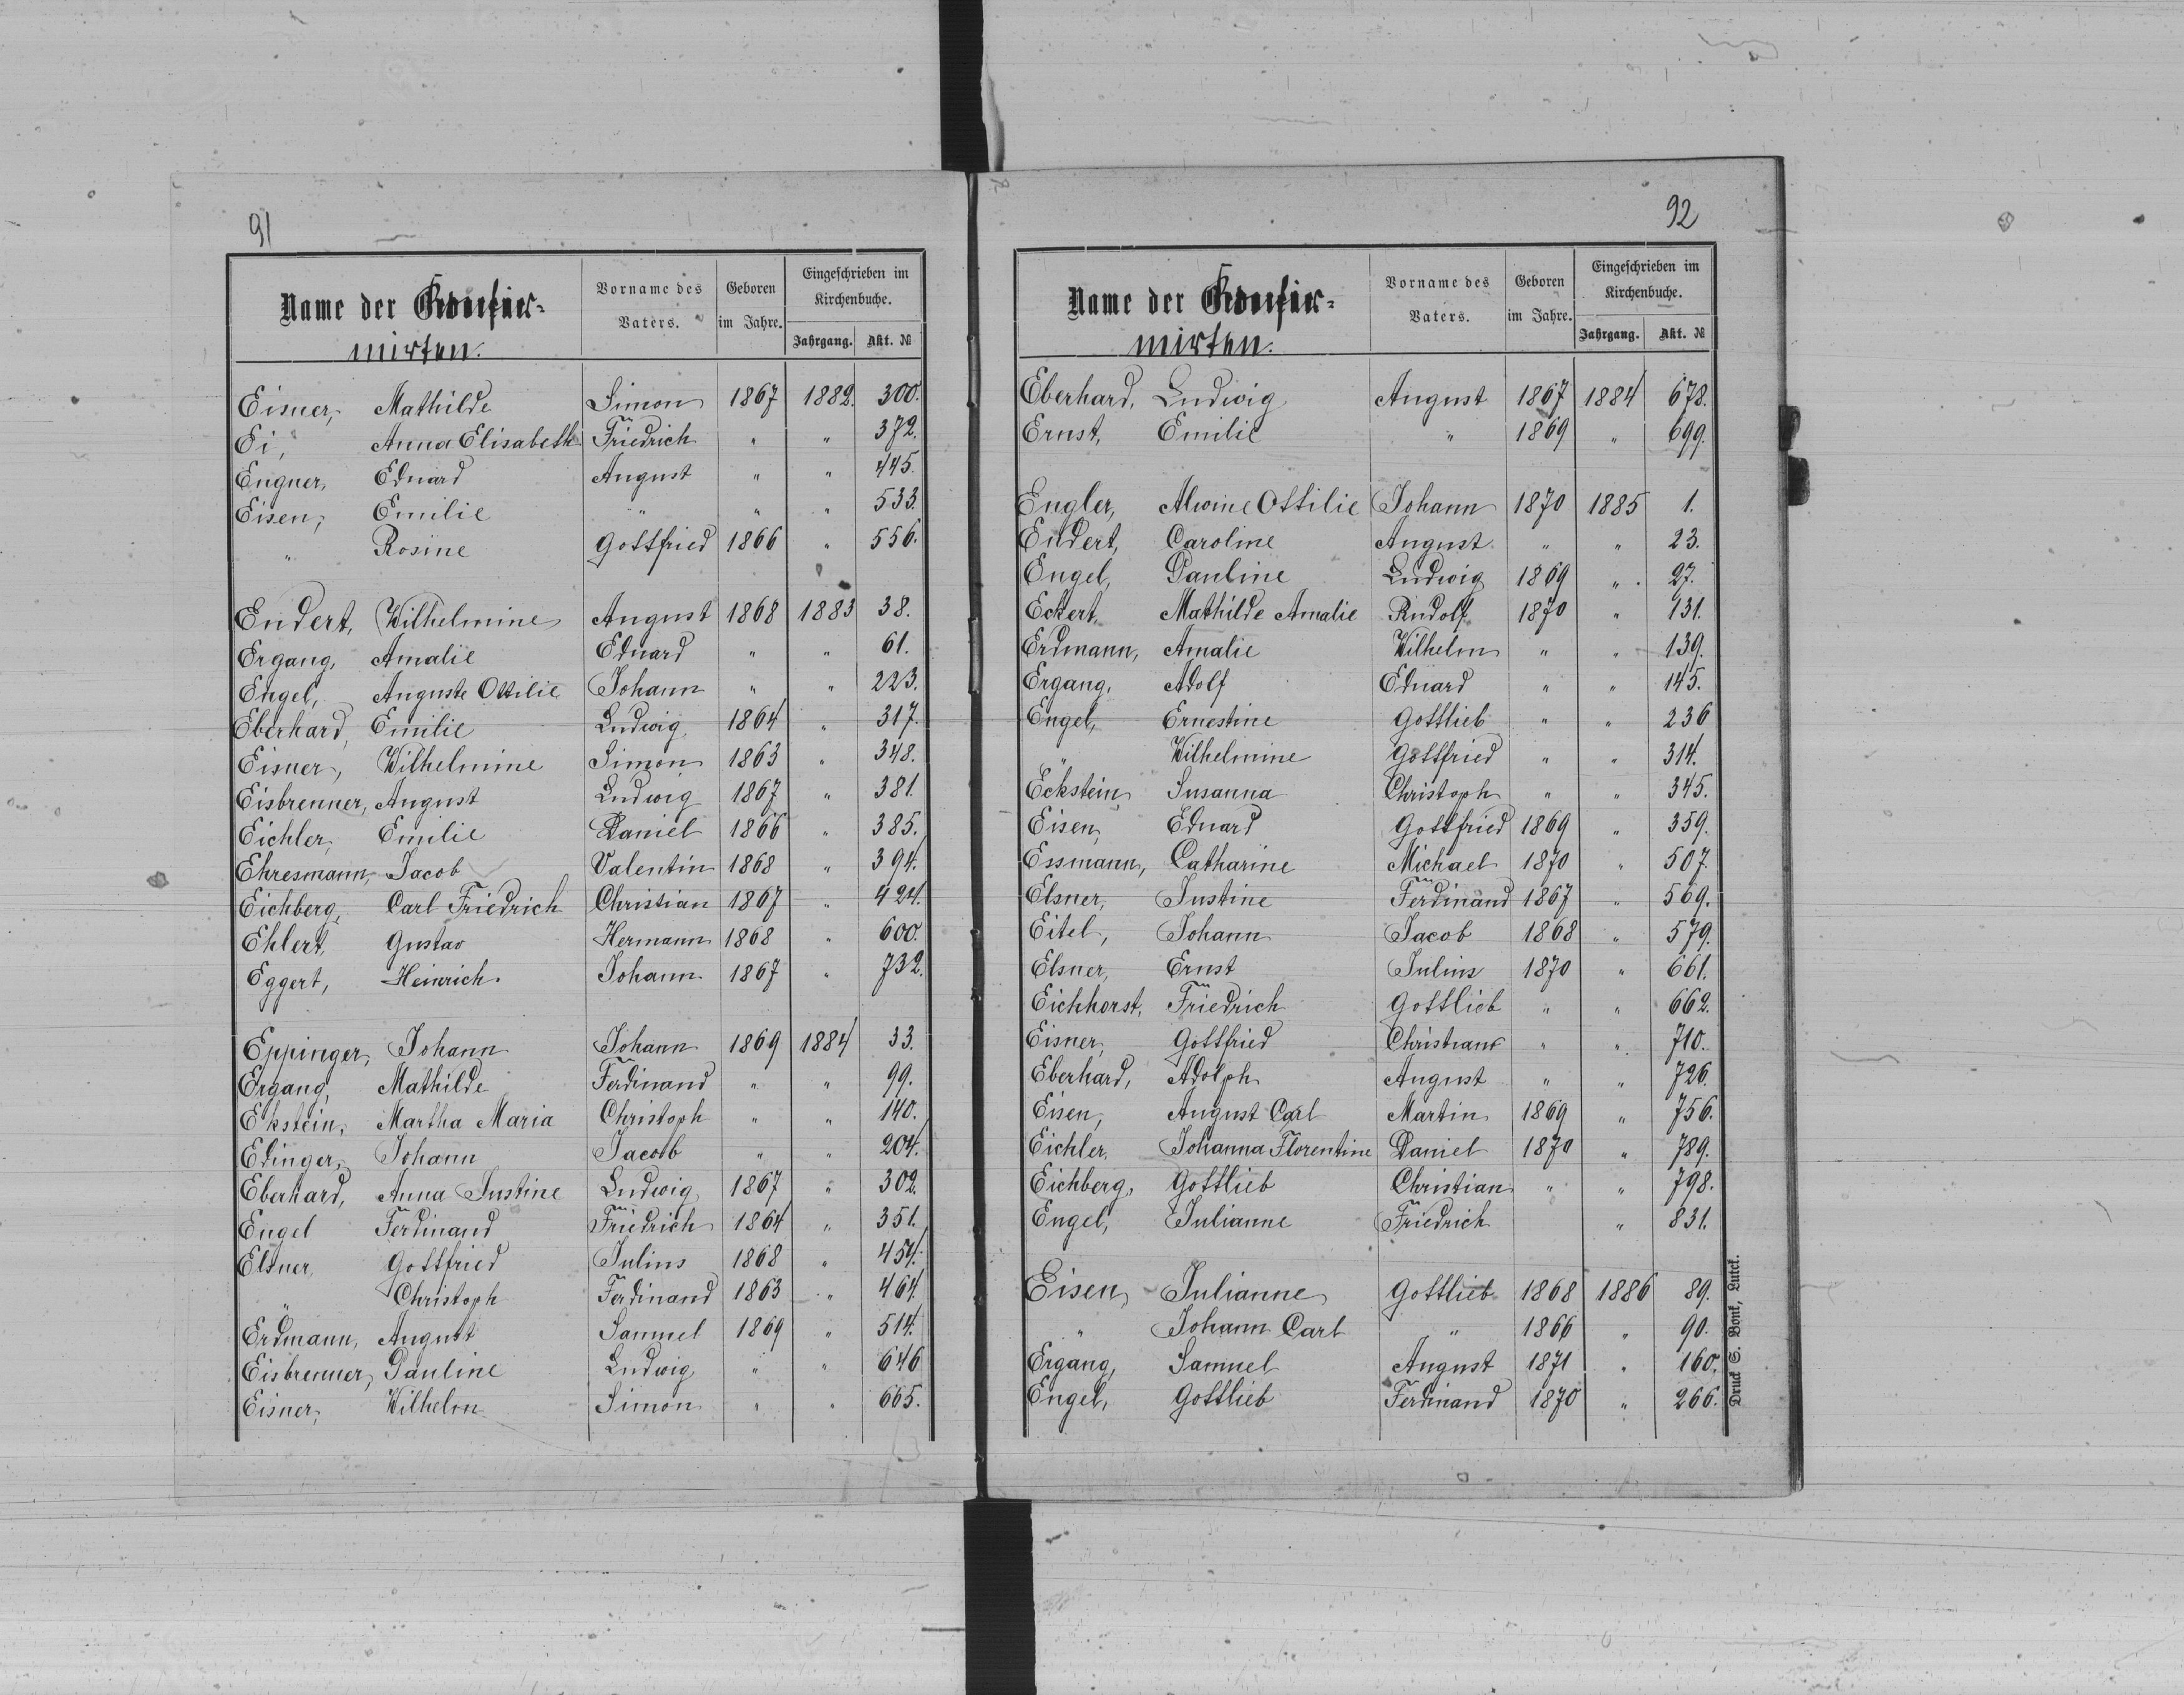 91
Name der Konfir-
mirten.
Vorname des Vaters.
Geboren im Jahre.
Eingeschrieben im Kirchenbuche.
Jahrgang. Akt. №
Eisner, Mathilde Simon 1867 1882. 300.
Ei, Anna Elisabeth Friedrich " " 372.
Engner, Eduard August " " 445.
Eisen, Emilie " " " 533.
" Rosine Gottfried 1866 " 556.
Endert, Wilhelmine August 1868 1883 38.
Ergang, Amalie Eduard " " 61.
Engel, Auguste Ottilie Johann " " 223.
Eberhard, Emilie Ludwig 1864 " 317.
Eisner, Wilhelmine Simon 1863 " 348.
Eisbrenner, August Ludwig 1867 " 381.
Eichler, Emilie Daniel 1866 " 385.
Ehresmann, Jacob Valentin 1868 " 394.
Eichberg, Carl Friedrich Christian 1867 " 424.
Ehlert, Gustav Hermann 1868 " 600.
Eggert, Heinrich Johann 1867 " 732.
Eppinger, Johann Johann 1869 1884 33.
Ergang, Mathilde Ferdinand " " 99.
Ekstein, Martha Maria Christoph " " 140.
Edinger, Johann Jacob " " 204.
Eberhard, Anna Justine Ludwig 1867 " 302.
Engel Ferdinand Friedrich 1864 " 351.
Elsner, Gottfried Julius 1868 " 454.
" Christoph Ferdinand 1863 " 464.
Erdmann, August Samuel 1869 " 514.
Eisbrenner, Pauline Ludwig " " 646
Eisner, Wilhelm Simon " " 665.
92
Name der Konfir-
mirten.
Vorname des Vaters.
Geboren im Jahre.
Eingeschrieben im Kirchenbuche.
Jahrgang. Akt. №
Eberhard, Ludwig August 1867 1884 678.
Ernst, Emilie " 1869 " 699.
Engler, Alwine Ottilie Johann 1870 1885 1.
Endert, Caroline August " " 23.
Engel, Pauline Ludwig 1869 " 27.
Eckert, Mathilde Amalie Rudolf 1870 " 131.
Erdmann, Amalie Wilhelm " " 139.
Ergang, Adolf Eduard " " 145.
Engel, Ernestine Gottlieb " " 236
" Wilhelmine Gottfried " " 314.
Eckstein, Susanna Christoph " " 345.
Eisen, Eduard Gottfried 1869 " 359.
Essmann, Catharine Michael 1870 " 507.
Elsner, Justine Ferdinand 1867 " 569.
Eitel, Johann Jacob 1868 " 579.
Elsner, Ernst Julius 1870 " 661.
Eichhorst, Friedrich Gottlieb " " 662.
Eisner, Gottfried Christian " " 710.
Eberhard, Adolph August " " 726.
Eisen, August Carl Martin 1869 " 756.
Eichler, Johanna Florentine Daniel 1870 " 789.
Eichberg, Gottlieb Christian " " 798.
Engel, Julianne Friedrich " 831.
Eisen, Julianne Gottlieb 1868 1886 89.
" Johann Carl " 1866 " 90.
Ergang, Samuel August 1871 " 160.
Engel, Gottlieb Ferdinand 1870 " 266.
Druck S. Bonk, Luck.